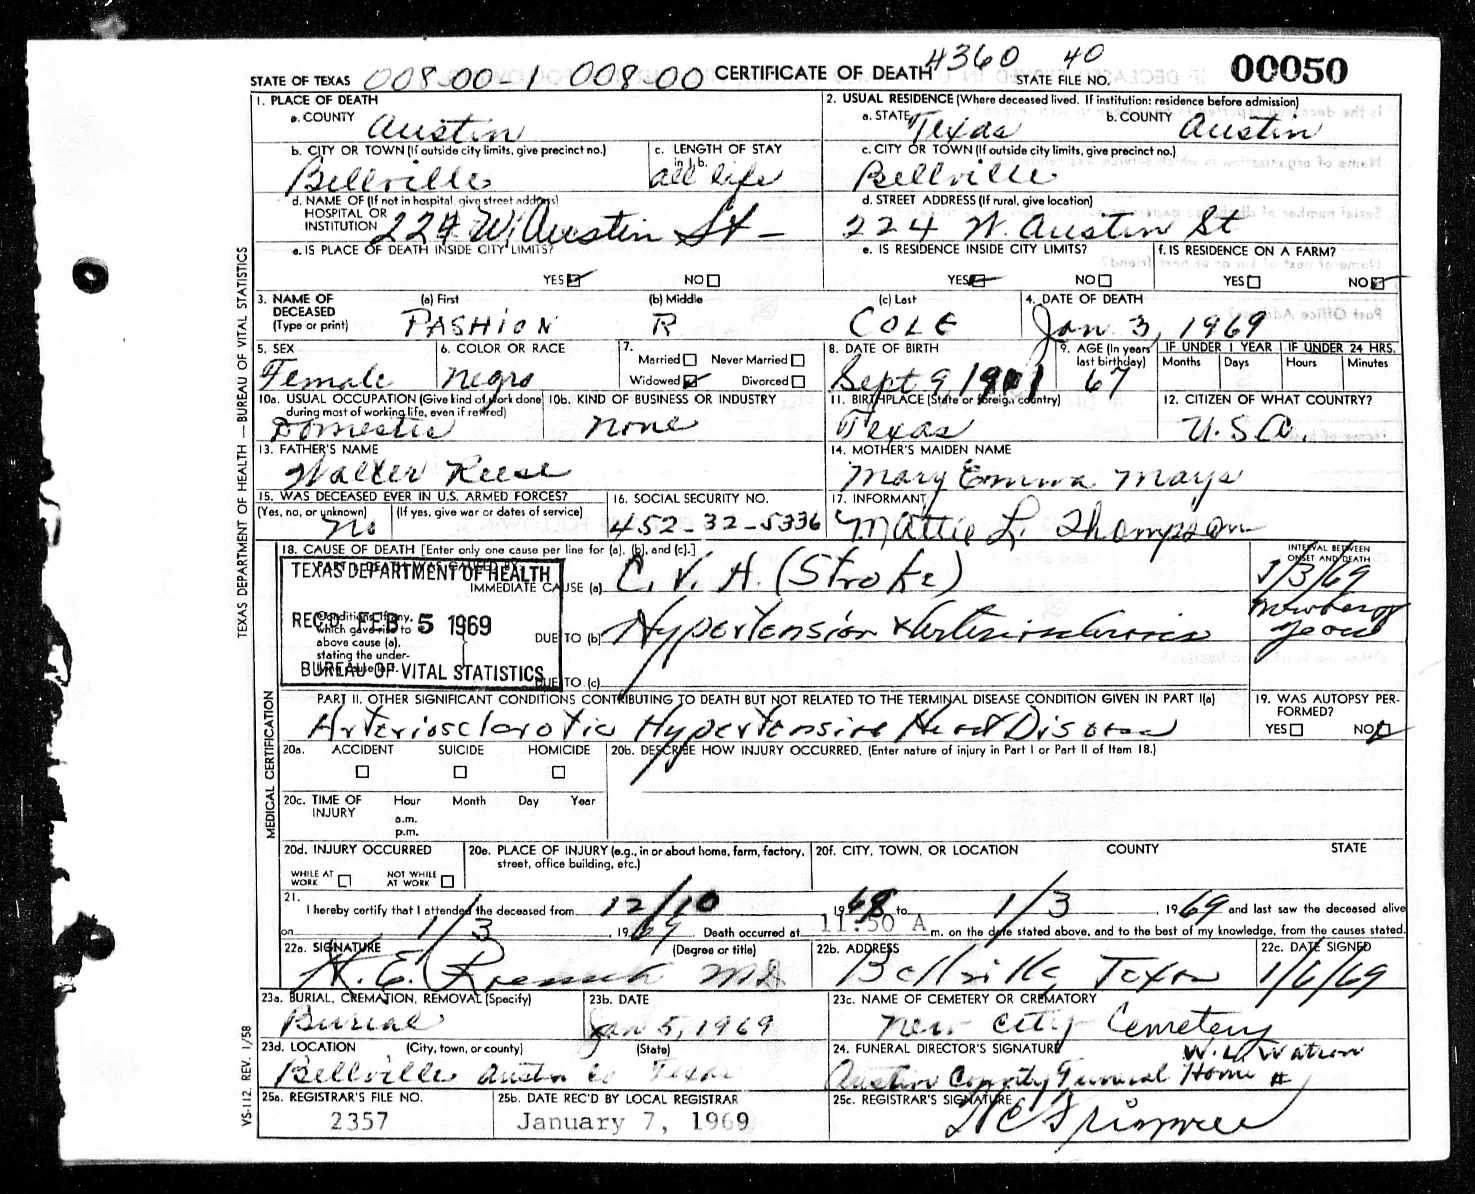 STATE OF TEXAS 008-00-1 008-00 CERTIFICATE OF DEATH 4360 40 STATE FILE NO. 00050
1. PLACE OF DEATH
a. COUNTY Austin
2. USUAL RESIDENCE (Where deceased lived. If institution: residence before admission)
a. STATE Texas b. COUNTY Austin
b. CITY OR TOWN (If outside city limits, give precinct no.) Bellville
c. LENGTH OF STAY in 1.b. all life
c. CITY OR TOWN (If outside city limits, give precinct no.) Bellville
d. NAME OF (If not in hospital, give street address) HOSPITAL OR INSTITUTION 224 W. Austin St -
d. STREET ADDRESS (If rural, give location) 224 W. Austin St
e. IS PLACE OF DEATH INSIDE CITY LIMITS? YES NO
e. IS RESIDENCE INSIDE CITY LIMITS? YES NO
f. IS RESIDENCE ON A FARM? YES NO
3. NAME OF DECEASED (Type or print) (a) First FASHION (b) Middle R (c) Last COLE
4. DATE OF DEATH Jan 3, 1969
5. SEX Female
6. COLOR OR RACE Negro
7. Married Never Married Widowed Divorced
8. DATE OF BIRTH Sept 9 1901
9. AGE (In years last birthday) 67
IF UNDER 1 YEAR Months Days IF UNDER 24 HRS. Hours Minutes
10a. USUAL OCCUPATION (Give kind of work done during most of working life, even if retired) Domestic
10b. KIND OF BUSINESS OR INDUSTRY None
11. BIRTHPLACE (State or foreign country) Texas
12. CITIZEN OF WHAT COUNTRY? U.S.A.
13. FATHER'S NAME Walter Reese
14. MOTHER'S MAIDEN NAME Mary Emma Mays
15. WAS DECEASED EVER IN U.S. ARMED FORCES? (Yes, no, or unknown) No (If yes, give war or dates of service)
16. SOCIAL SECURITY NO. 452-32-5336
17. INFORMANT Mattie L. Thompson
18. CAUSE OF DEATH [Enter only one cause per line for (a), (b), and (c).]
INTERVAL BETWEEN ONSET AND DEATH
PART I. DEATH WAS CAUSED BY:
IMMEDIATE CAUSE (a) C.V.A. (Stroke) 1/3/69
TEXAS DEPARTMENT OF HEALTH
REC'D FEB 5 1969
BUREAU OF VITAL STATISTICS
Conditions, if any, which gave rise to above cause (a), stating the underlying cause last.
DUE TO (b) Hypertension & Arteriosclerosis number of years
DUE TO (c)
PART II. OTHER SIGNIFICANT CONDITIONS CONTRIBUTING TO DEATH BUT NOT RELATED TO THE TERMINAL DISEASE CONDITION GIVEN IN PART I(a)
Arteriosclerotic Hypertensive Heart Disease
19. WAS AUTOPSY PERFORMED? YES NO
20a. ACCIDENT SUICIDE HOMICIDE
20b. DESCRIBE HOW INJURY OCCURRED. (Enter nature of injury in Part I or Part II of Item 18.)
20c. TIME OF INJURY Hour Month Day Year
a.m.
p.m.
20d. INJURY OCCURRED WHILE AT WORK NOT WHILE AT WORK
20e. PLACE OF INJURY (e.g., in or about home, farm, factory, street, office building, etc.)
20f. CITY, TOWN, OR LOCATION COUNTY STATE
21. I hereby certify that I attended the deceased from 12/10 1968 to 1/3, 1969 and last saw the deceased alive
on 1/3, 1969 Death occurred at 11:50 A m. on the date stated above, and to the best of my knowledge, from the causes stated.
22a. SIGNATURE (Degree or title) H. E. MD
22b. ADDRESS Bellville, Texas
22c. DATE SIGNED 1/6/69
23a. BURIAL, CREMATION, REMOVAL (Specify) Burial
23b. DATE Jan 5, 1969
23c. NAME OF CEMETERY OR CREMATORY New City Cemetery
23d. LOCATION (City, town, or county) (State) Bellville Austin Co Texas
24. FUNERAL DIRECTOR'S SIGNATURE W. L. Watson
Austin County Funeral Home
25a. REGISTRAR'S FILE NO. 2357
25b. DATE REC'D BY LOCAL REGISTRAR January 7, 1969
25c. REGISTRAR'S SIGNATURE
MEDICAL CERTIFICATION
TEXAS DEPARTMENT OF HEALTH — BUREAU OF VITAL STATISTICS
VS-112. REV. 1/58